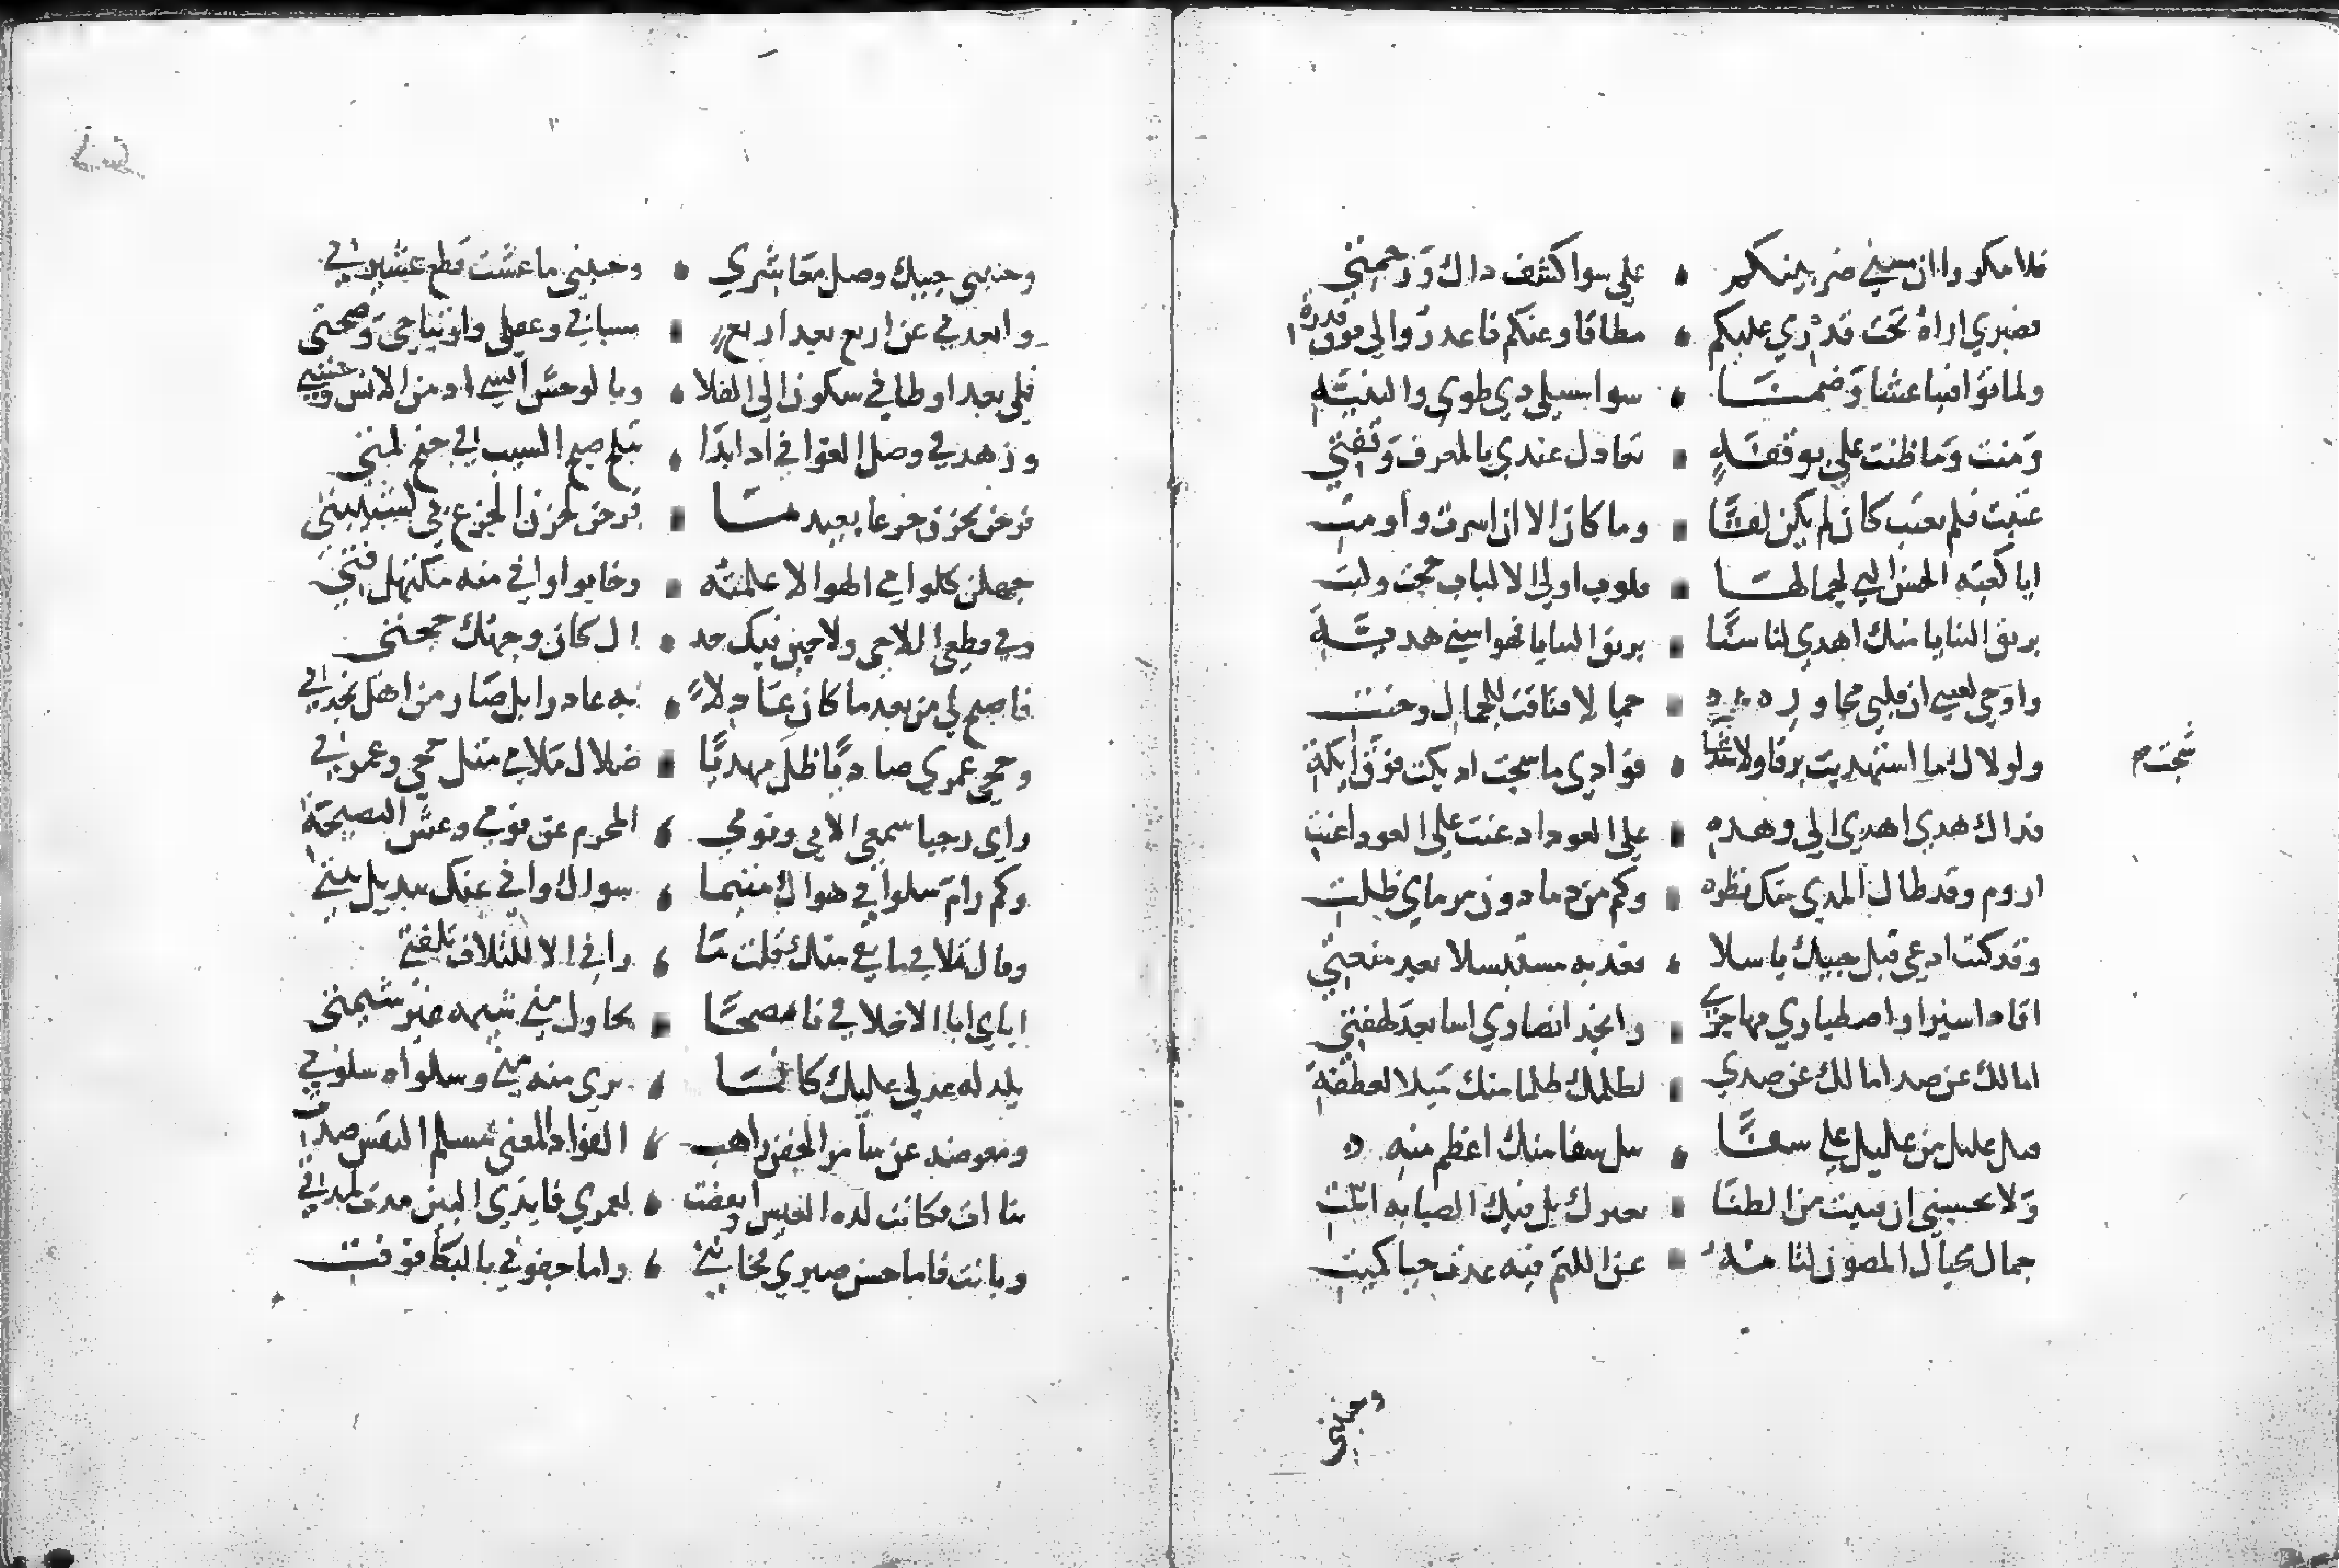 فلا تنكروا ان مسني ضر بينكم • علي سوا كشف داك ورحمتي
فصبري اراه تحت قدري عليكم • مطاقا وعنكم فاعدروا لي فوق قدرة
ولما توافينا عشا وضمنا • سوا سبيلي دي طوي والثنية
ومنت وما ظنت علي بوقفة • تعادل عندي بالمعرف وقفتي
عتبت فلم تعتب كان لم يكن لقا • وما كان الا ان اسرت واومت
ايا كعبة الحسن التي لجمالها • قلوب اولي الالباب حجت ولبت
بريق الثنايا منك اهدي لنا سنا • بريق الثنايا فهوا سني هدية
واوحي لعيني ان قلبي مجاور • حماك لا فتاقت للجمال وحنت
ولولاك ما استهديت برقا ولا شجا • فؤادي ما سجت اد بكت فوق ايكة
شجت م
فداك هدي اهدي الي وهده • علي العود اد غنت علي العود اغنت
اروم وقد طال المدي منك نظره • وكم من دما دون مرماي ظلت
وقد كنت ادعي قبل حبيك باسلا • فعدت به مستبسلا بعد منعتي
اقاد اسيرا واصطباري مهاجري • وانجد انصاري اسا بعد لهفتي
امالك عن صد امالك عن صدي • لظلمك ظلما منك ميلا لعطفة
فبل غليل من عليل علي شفا • يبل شفا منك اعظم منه
ولا تحسبي ان فنيت من الظنا • بغيرك بل فيك الصبابه ابلت
جمال محياك المصون لثامه • عن اللثم فيه عدت حيا كميت
وجنبني
وجنبني حبيك وصل معاشري • وحببني ما عشت قطع عشيرتي
وابعدني عن اربع بعد اربع • شبابي وعقلي وارتياحي وصحتي
فلي بعد اوطاني سكون الي الفلا • وبالوحش انسي اد من الانس وحشتي
وزهد في وصل الغواني اد ابدا • تبلج صبح الشيب في جنح لمتي
فرحن بحزن جزعا بعيد ما • فرحن بحزن الجزع في لشبيبتي
جهلن كلوامي الهوا لا علمنه • وخابوا واني منه مكتهل فتي
وفي قطعي اللاحي ولاحين فيك جد • ال كان وجهك حجتي
فاصبح لي من بعد ما كان عادلا • به عادرا بل صار من اهل نجدتي
وحجي عمري هاديا ظل مهديا • ضلال ملامي مثل حجي وعمرتي
وراي رجبا سمعي الابي ولومي • المحرم عن لومي وغش النصيحة
وكم رام سلواني هواك ميمما • سواك واني عنك تبديل نيتي
وقال تلافي ما بقي منك قلت ما • راني الا للتلاف تلفتي
اباي ابا الا خلافي ناصحا • يحاول مني شيمه غير شيمتي
يلد له عدلي عليك كانما • يري منه مني وسلواه سلوتي
ومعرضه عن سامر الجفن راهب • الفواد المعني مسلم النفس صدت
تناات فكانت لده العيش وانقضت • بعمري فايدي البين مدت لمدتي
وبانت فاما حسن صبري فخانني • واما جفوني بالبكا فوفت